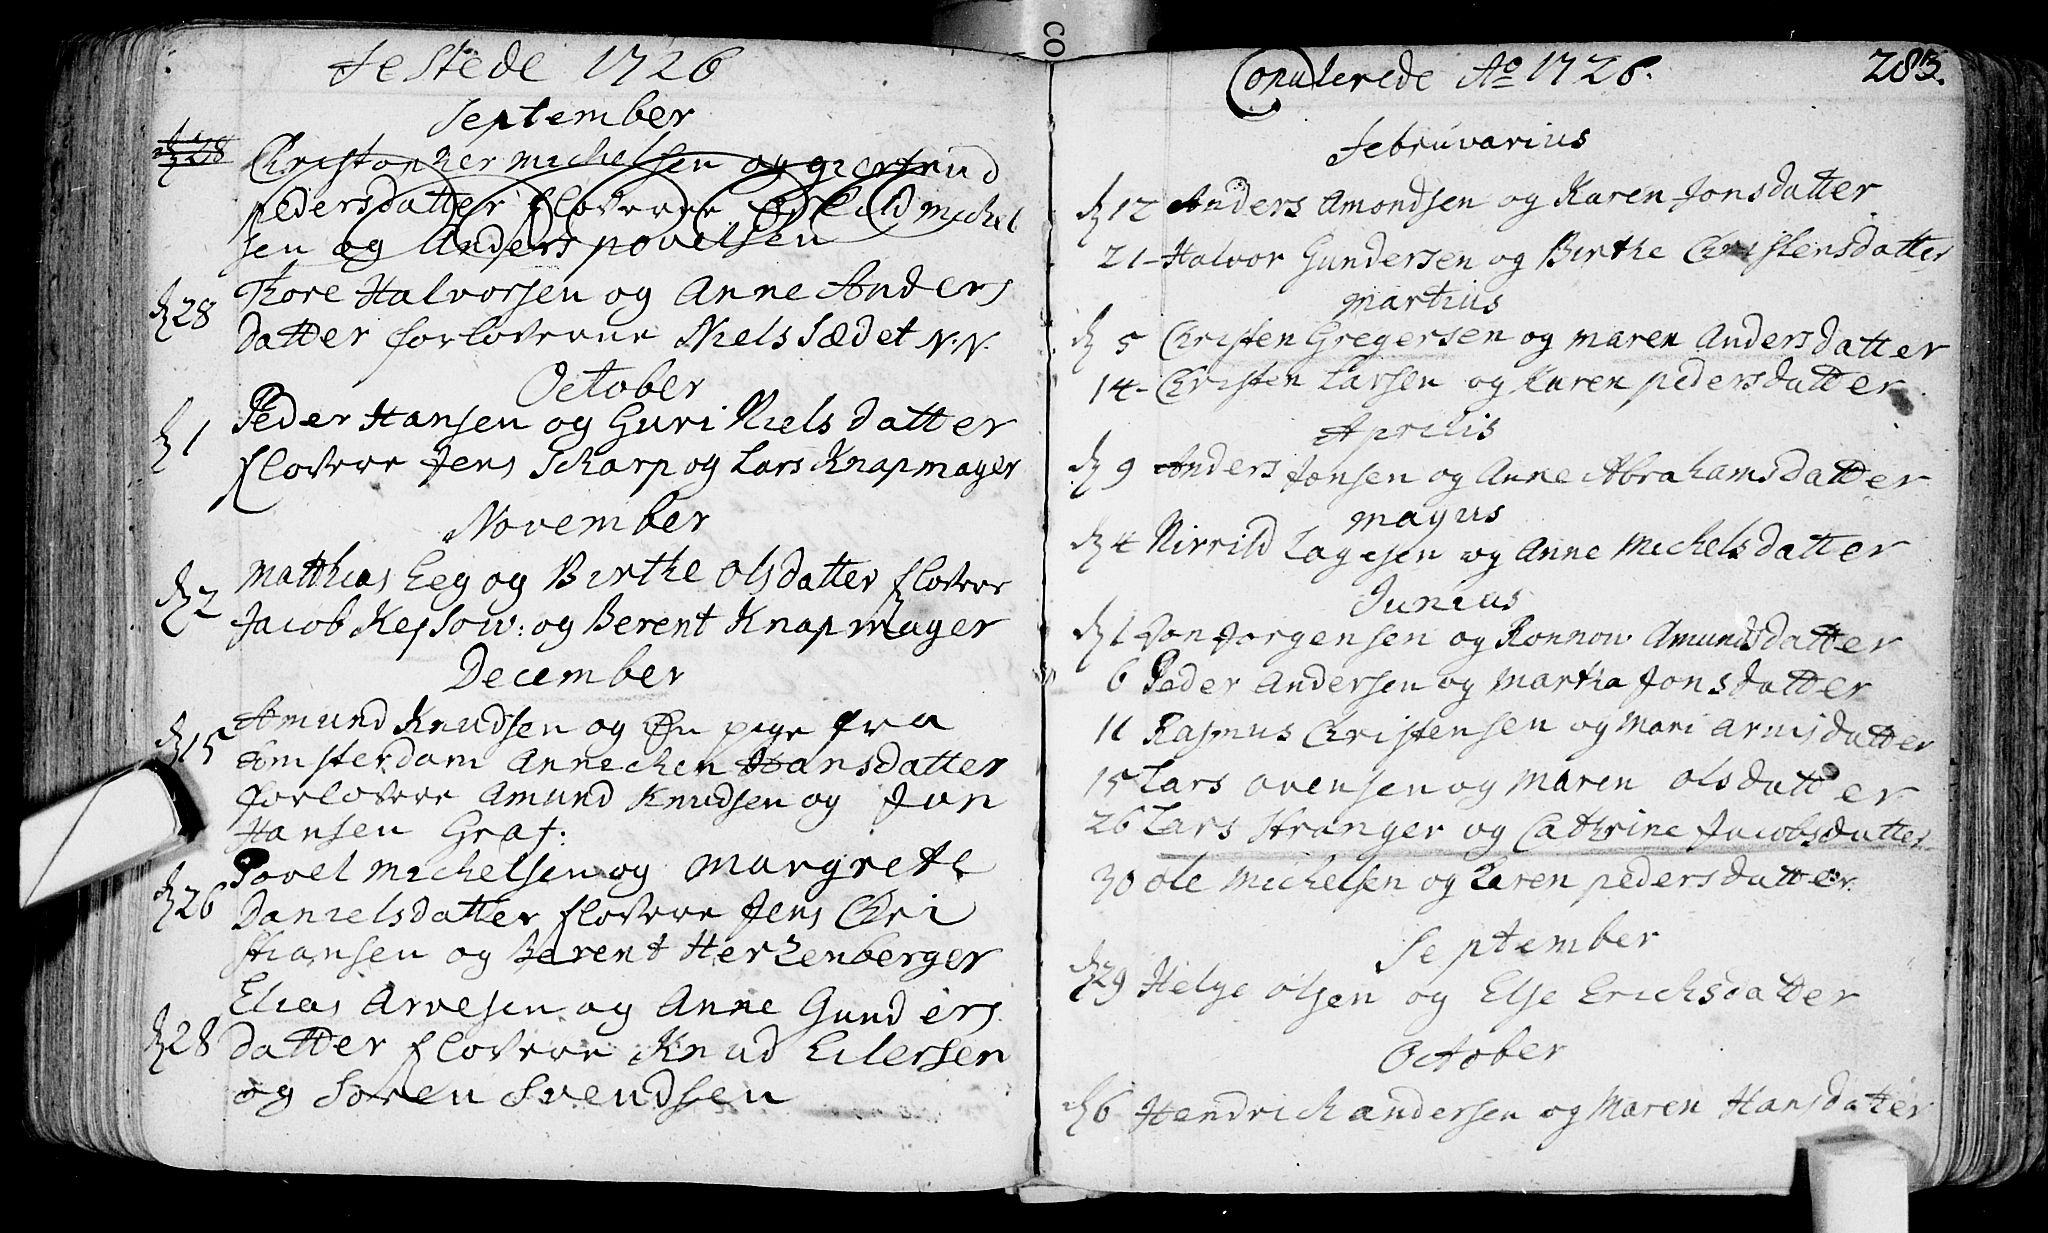 Festede 1726
September
d 28 Christopher Michelsen og giertrud
pedersdatter flovere Eskild Michel
sen og Anders povelsen
d 28 Thore Halvorsen og Anne Anders
datter forloverne Niels Sædet N.N.
October
d 1 Peder Hansen og Guri Nielsdatter
flovere Jens Scharp og Lars Knapmager
November
d 2 Matthias Eeg og Birthe Olsdatter flovere
Jacob Kessow: og Berent Knapmager
December
d 15 Amund Knudsen og En pige fra
Amsterdam Annichen Hansdatter
forlovere Amund Knudsen og Jan
Hansen Graf:
d 26 Povel Michelsen og Margrete
Danielsdatter flovere Jens Chri
stiansen og Berent Hertzenberger
d 28 Elias Arvesen og Anne Gunders
datter flovere Knud Eilersen
og Soren Svendsen
Copulerede Ao 1726.
283.
Februvarius
d 12 Anders Amondsen og Karen Jonsdatter
21 - Halvor Gundersen og Birthe Christensdatter
Martius
d 5 Christen Gregersen og Maren Andersdatter
14 - Christen Larsen og Karen pedersdatter
Aprilis
d 9 Anders Jonsen og Anne Abrahamsdatter
Mayus
d 4 Nirrild Lagesen og Anne Michelsdatter
Junius
d 1 Jon Jorgensen og Ronnow Amundsdatter
6 Peder Andersen og Martha Jonsdatter
11 Rasmus Christensen og Mari Arnisdatter
15 Lars ovensen og Maren olsdatter
26 Lars Stranger og Cathrine Jacobsdatter
30 ole Michelsen og Karen pedersdatter.
September
d 29 Helge olsen og Else Erichsdatter
October
d 6 Hendrich andersen og Maren Hansdatter